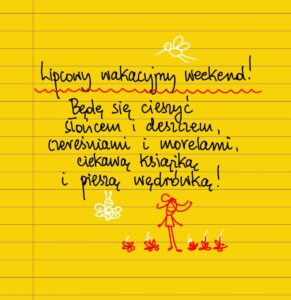 Lipcowy wakacyjny weekend!
Będę się cieszyć
słońcem i deszczem,
czereśniami i morelami,
ciekawą książką
i pieszą wędrówką!